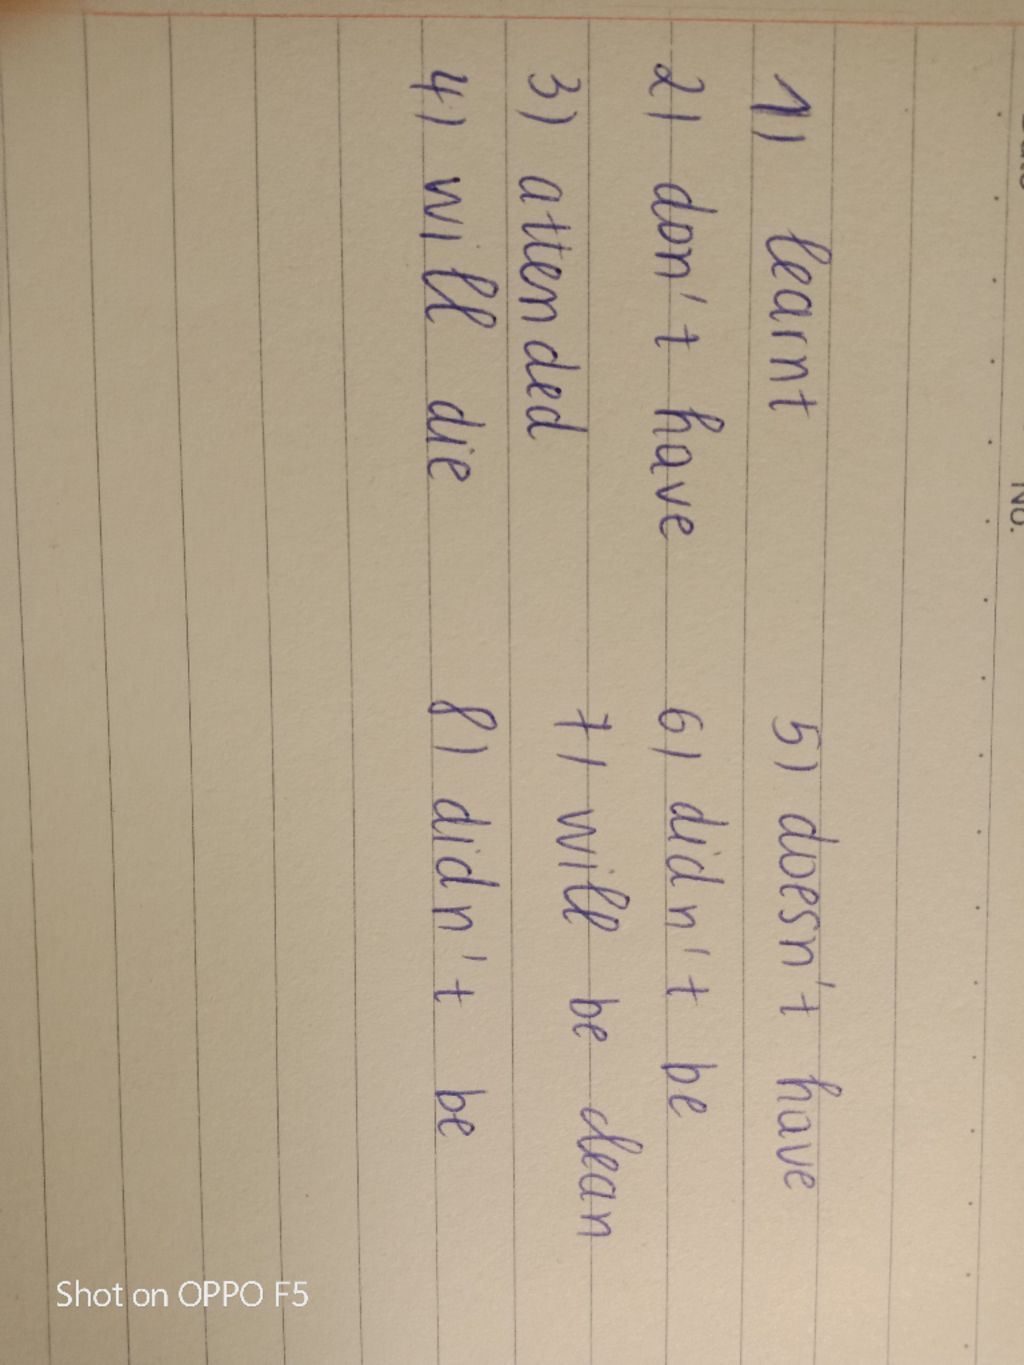 No.
1) learnt
2) don't have
3) attended
4) will die
5) doesn't have
6) didn't be
7) will be clean
8) didn't be
Shot on OPPO F5